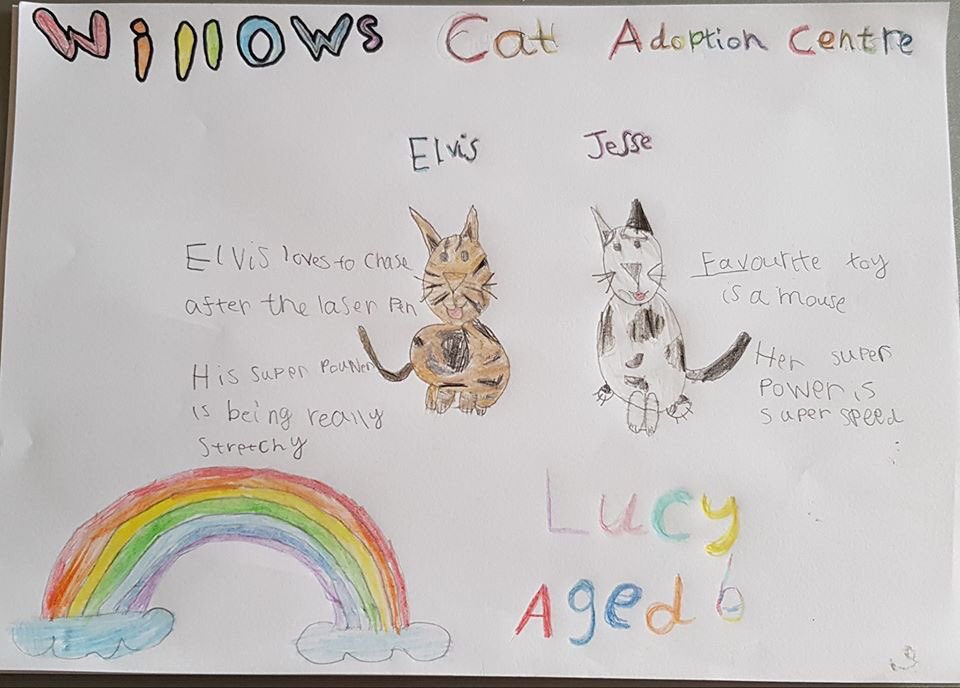 Willows Cat Adoption Centre
Elvis
Jesse
Elvis loves to chase
after the laser Pen
His super power
is being really
stretchy
Favourite toy
is a mouse
Her super
power is
super speed
Lucy
Aged 6